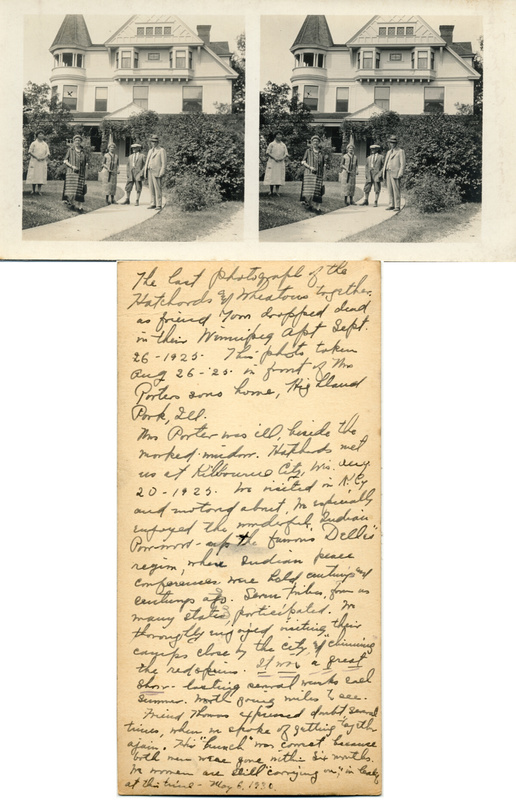 The last photograph of the
Hathords & Wheatons together,
as friend Tom dropped dead
in their Winnipeg Apt Sept.
26-1925. This photo taken
Aug 26-'25. in front of Mrs
Porters sons home, Highland
Park, Ill.
Mrs Porter was ill, beside the
marked window. Hathords met
us at Kilbourne City, Wis. Aug.
20-1925. We visited in K. Cy
and motored about, We especially
enjoyed the wonderful Indian
Powwow - up the famous "Dells"
region, where Indian peace
conferences were held centuries and
centuries ago. Seven tribes, from as
many states, participated. We
thoroughly enjoyed visiting their
camps close by the city, & "chinning"
the redskins. It was a great
Show - lasting several weeks each
summer. Worth going miles to see.
Friend Thomas expressed doubt several
times, when we spoke of getting together
again. His "hunch" was correct because
both men were gone within six months.
We women are still "carrying on", in
at this time - May 6, 1930.